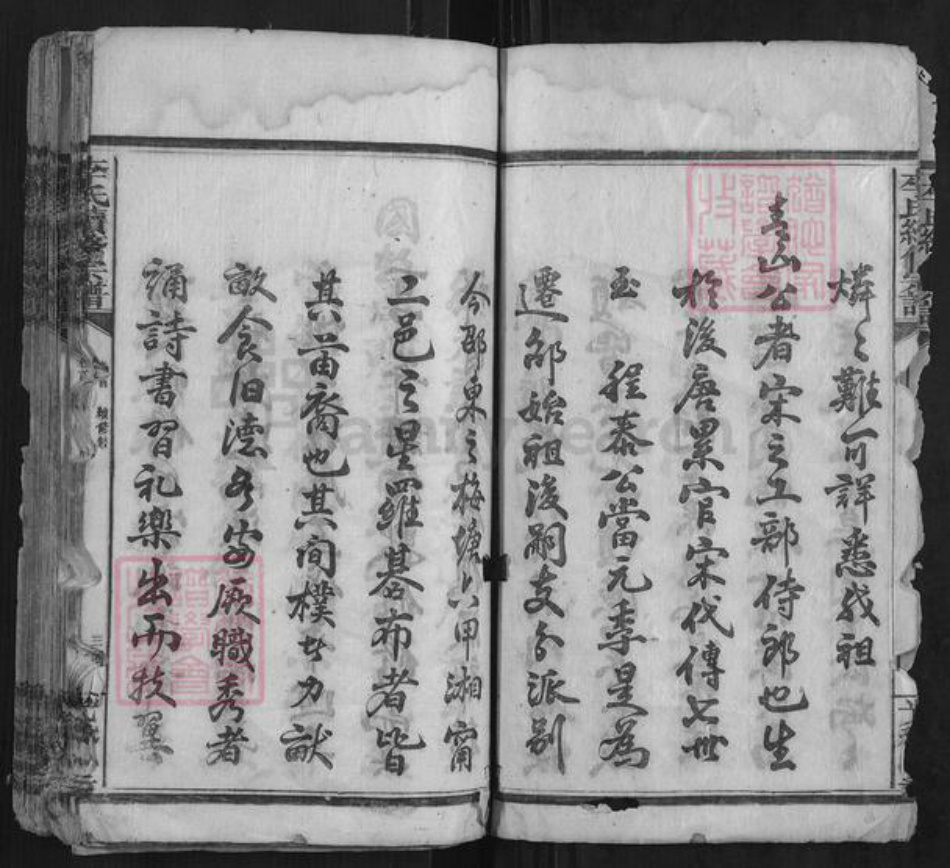 燐々難可詳悉我祖
青山公者宋之工部侍郎也生
於後唐累官宋代傳七世
至 程泰公當元季是為
遷邵始祖後嗣支分派别
今邵東之梅塘六甲湘甯
二邑之星羅碁布者皆
其苗裔也其間樸者力畎
畝食旧德各安厥職秀者
誦詩書習礼樂出而技翼
李氏續修支譜